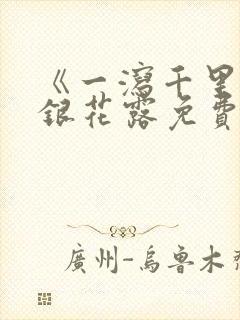 《一瀉千里
銀花露免費
廣州-烏魯木齊